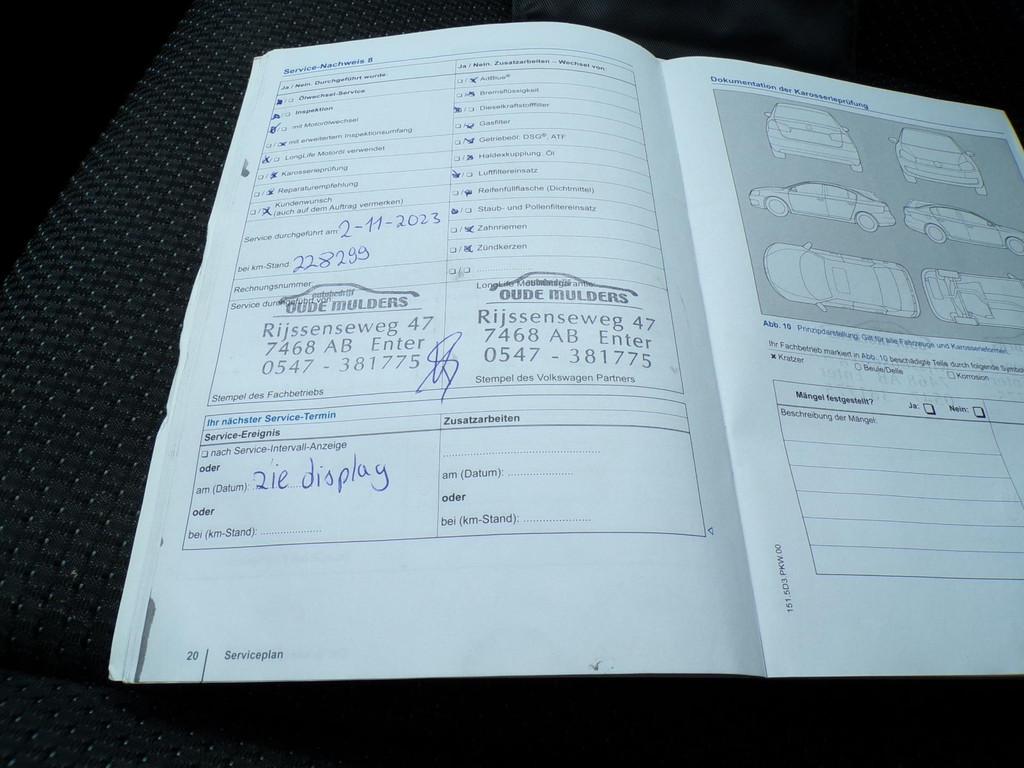 Service-Nachweis 8
Ja / Nein. Durchgeführt wurde:
Ölwechsel-Service
Inspektion
mit Motorölwechsel
mit erweitertem Inspektionsumfang
LongLife Motoröl verwendet
Karosserieprüfung
Reparaturempfehlung
Kundenwunsch
(auch auf dem Auftrag vermerken)
Service durchgeführt am: 2-11-2023
bei km-Stand: 228299
Rechnungsnummer
Service durchgeführt von:
autobedrijf
OUDE MULDERS
Rijssenseweg 47
7468 AB Enter
0547 - 381775
Stempel des Fachbetriebs
Ja / Nein. Zusatzarbeiten – Wechsel von:
AdBlue®
Bremsflüssigkeit
Dieselkraftstofffilter
Gasfilter
Getriebeöl: DSG®, ATF
Haldexkupplung: Öl
Luftfiltereinsatz
Reifenfüllflasche (Dichtmittel)
Staub- und Pollenfiltereinsatz
Zahnriemen
Zündkerzen
LongLife Mobilitätsgarantie:
OUDE MULDERS
Rijssenseweg 47
7468 AB Enter
0547 - 381775
Stempel des Volkswagen Partners
Ihr nächster Service-Termin
Service-Ereignis
nach Service-Intervall-Anzeige
oder
am (Datum): zie display
oder
bei (km-Stand):
Zusatzarbeiten
am (Datum):
oder
bei (km-Stand):
20 Serviceplan
Dokumentation der Karosserieprüfung
Abb. 10 Prinzipdarstellung: Gilt für alle Fahrzeuge und Karosserieformen.
Ihr Fachbetrieb markiert in Abb. 10 beschädigte Teile durch folgende Symbol
x Kratzer
Beule/Delle
Korrosion
Mängel festgestellt? Ja: Nein:
Beschreibung der Mängel:
151.5D3.PKW.00